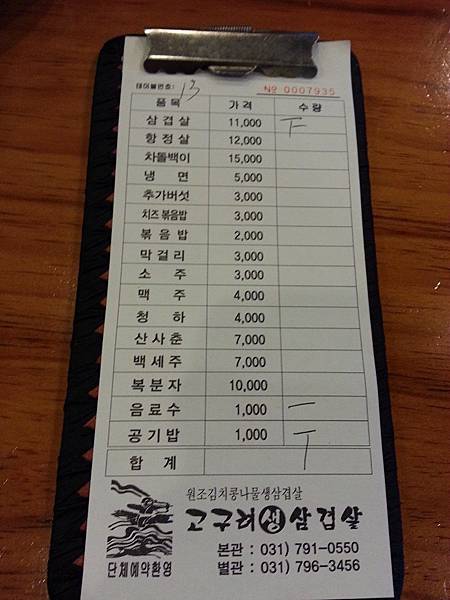 테이블번호: 13
№ 0007935
품목 가격 수량
삼겹살 11,000 F
항정살 12,000
차돌백이 15,000
냉 면 5,000
추가버섯 3,000
치즈볶음밥 3,000
볶음밥 2,000
막걸리 3,000
소 주 3,000
맥 주 4,000
청 하 4,000
산사춘 7,000
백세주 7,000
복분자 10,000
음료수 1,000 一
공기밥 1,000 T
합 계
원조김치콩나물생삼겹살
고구려생삼겹살
단체예약환영
본관 : 031) 791-0550
별관 : 031) 796-3456